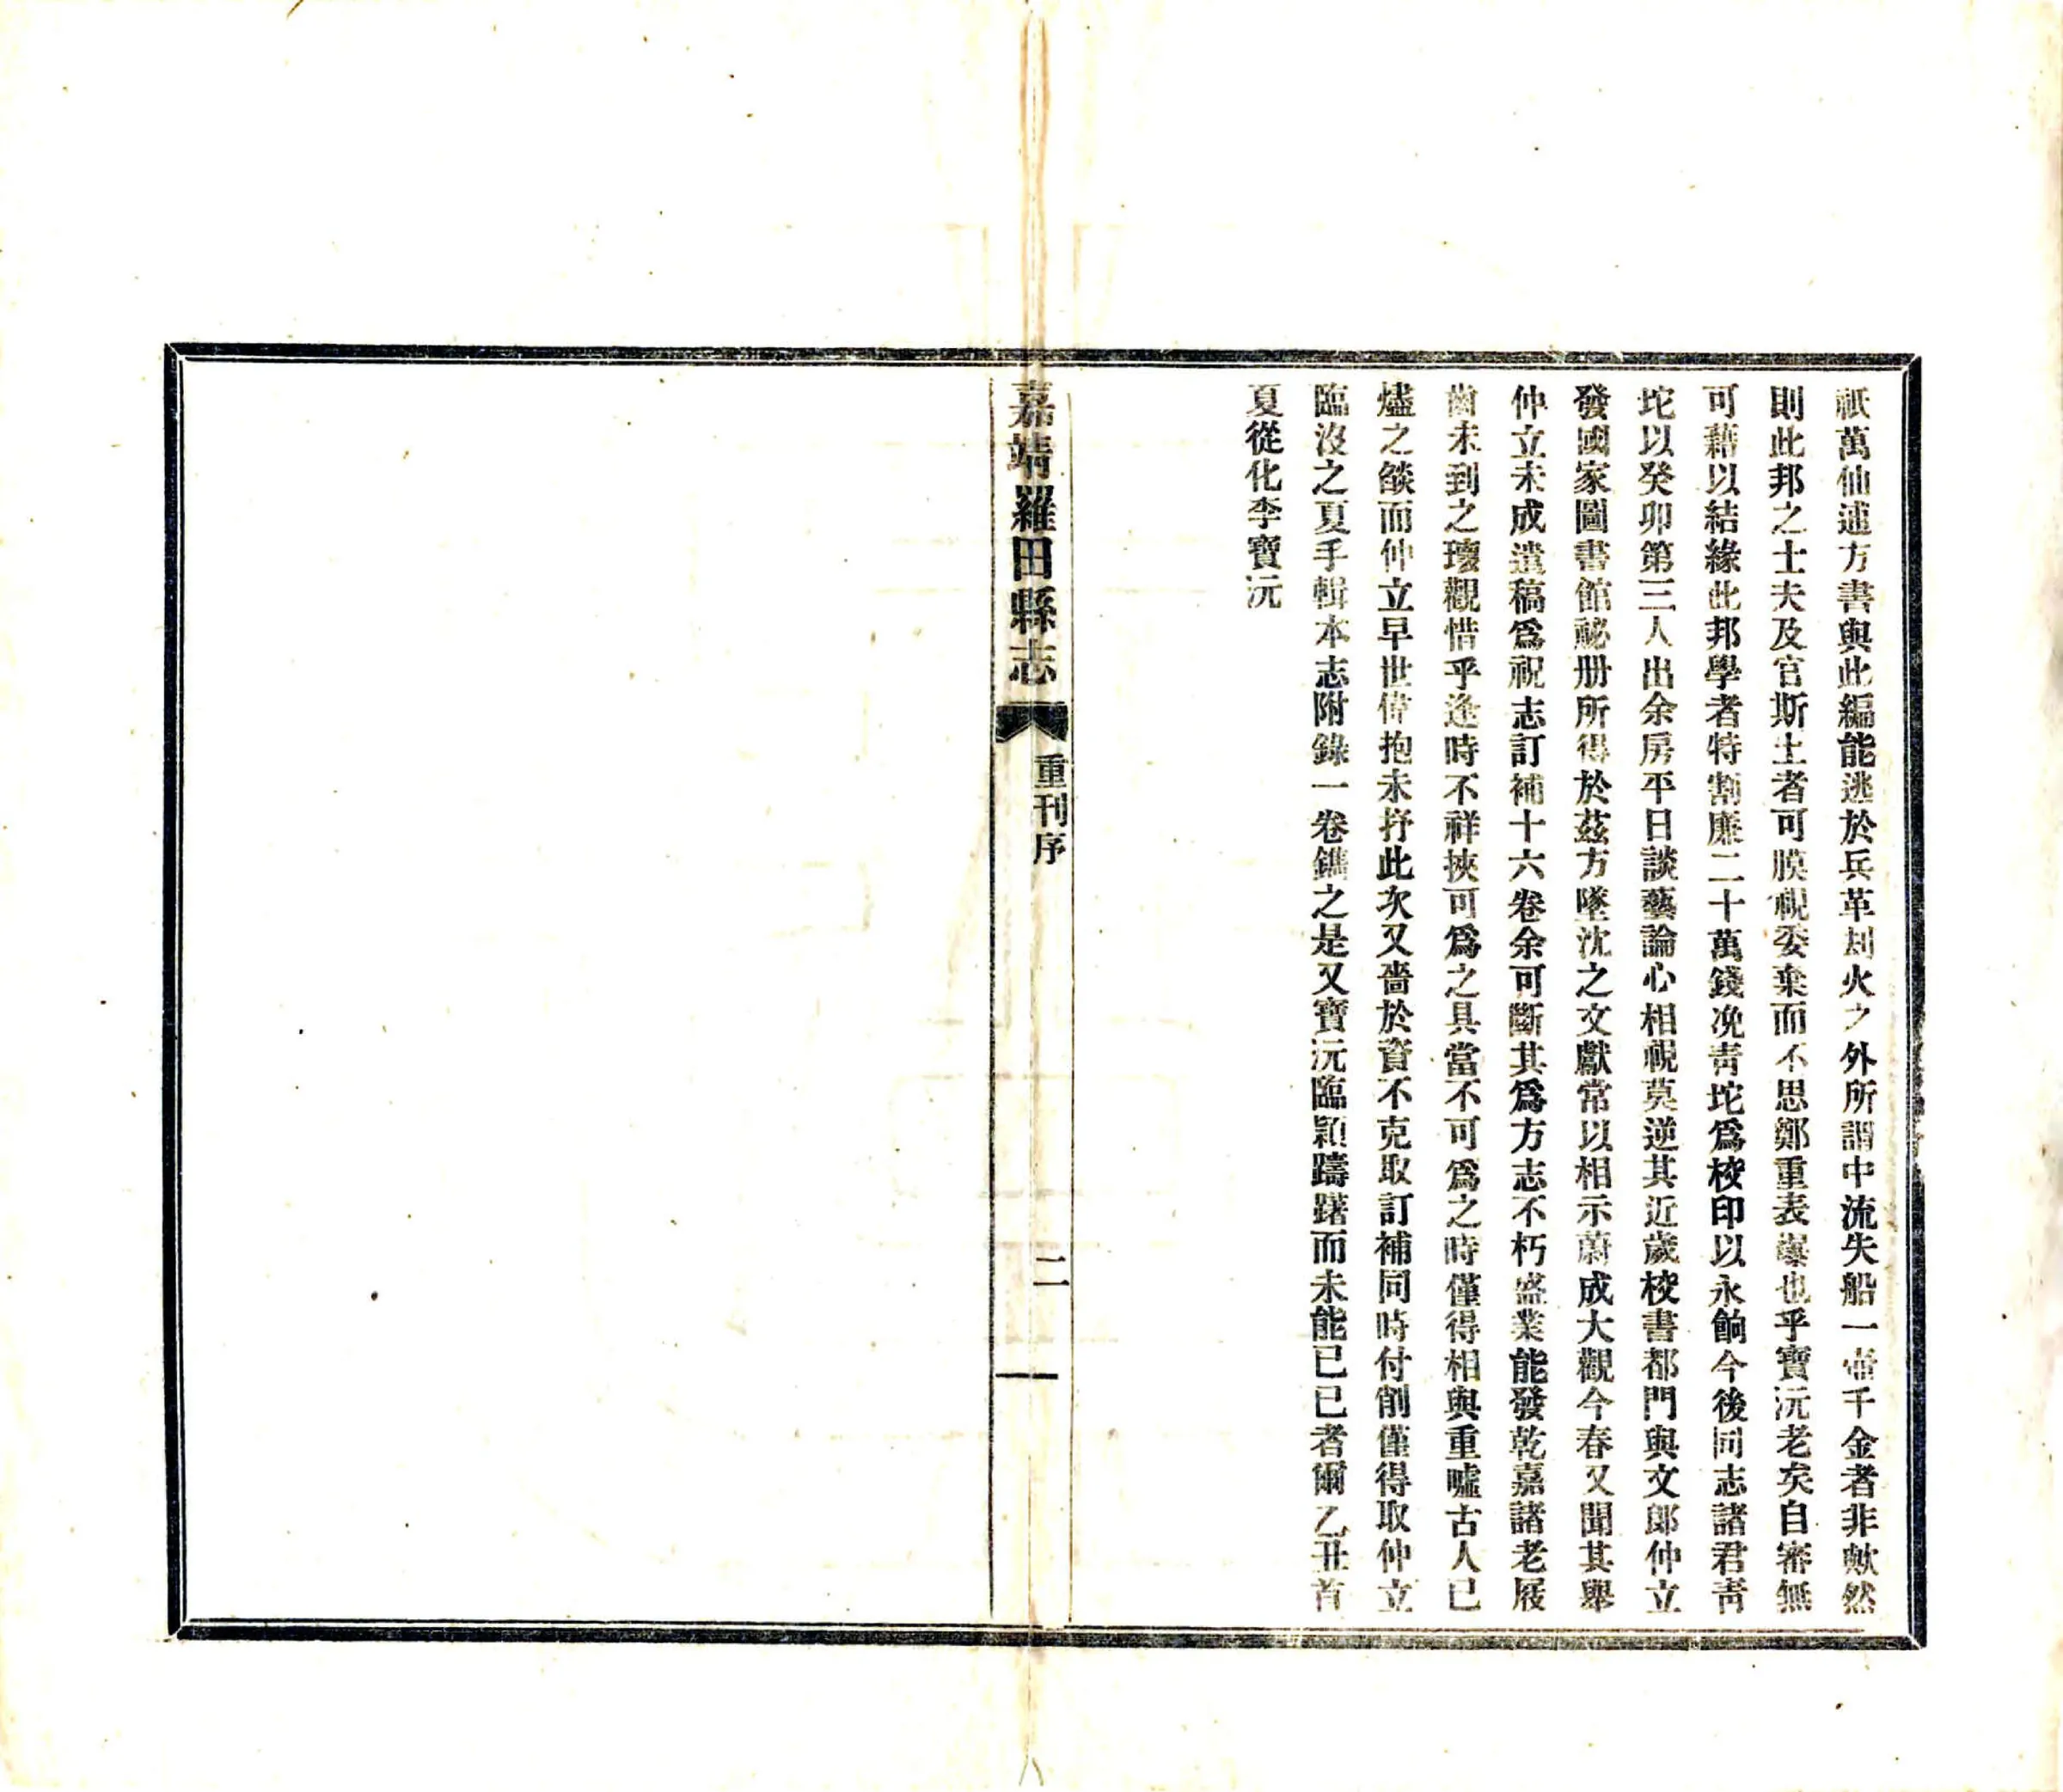 祇萬仙逋方書與此編能逃於兵革刦火之外所謂中流失船一壺千金者非歟然
則此邦之士夫及官斯土者可膜視委棄而不思鄭重表襮也乎寶沅老矣自審無
可藉以結緣此邦學者特割廉二十萬錢浼青坨爲校印以永餉今後同志諸君青
坨以癸卯第三人出余房平日談藝論心相視莫逆其近歲校書都門與文郞仲立
發國家圖書館祕册所得於茲方墜沈之文獻常以相示蔚成大觀今春又聞其舉
仲立未成遺稿爲祝志訂補十六卷余可斷其爲方志不朽盛業能發乾嘉諸老屐
齒未到之瓌觀惜乎逢時不祥挾可爲之具當不可爲之時僅得相與重噓古人已
燼之燄而仲立早世偉抱未抒此次又嗇於資不克取訂補同時付削僅得取仲立
臨沒之夏手輯本志附錄一卷鐫之是又寶沅臨穎躊躇而未能已已者爾乙丑首
夏從化李寶沅
嘉靖羅田縣志
重刊序
二